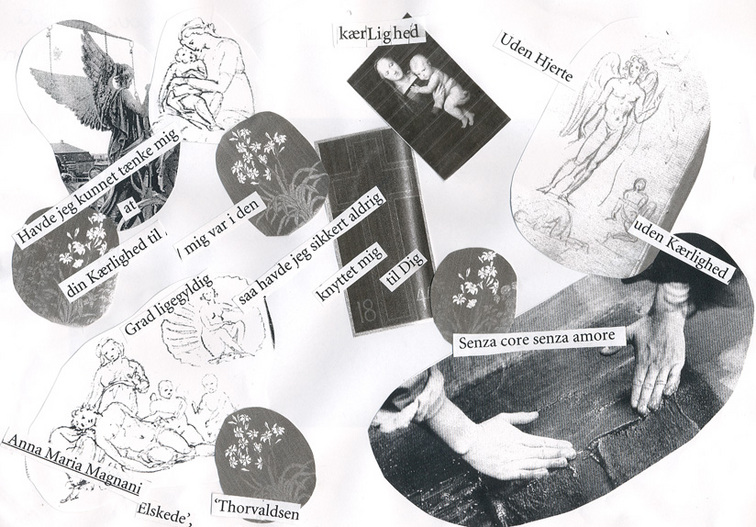 kærLighed
Uden Hjerte
Havde jeg kunnet tænke mig
at
din Kærlighed til
/ mig var i den
Grad ligegyldig
saa havde jeg sikkert aldrig
knyttet mig
til Dig
uden Kærlighed
Senza core senza amore
18 4
Anna Maria Magnani
Elskede',
'Thorvaldsen